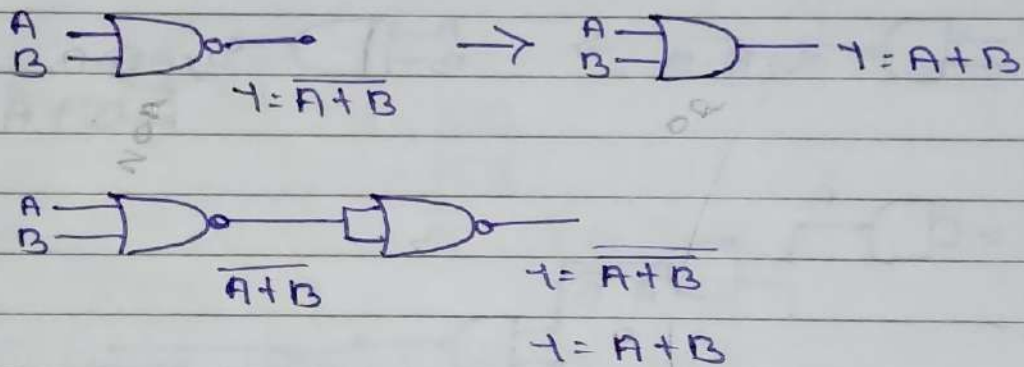 A
B
Y = \overline{A+B}
NOR
→
A
B
Y = A+B
OR
A
B
\overline{A+B}
Y = \overline{\overline{A+B}}
Y = A+B